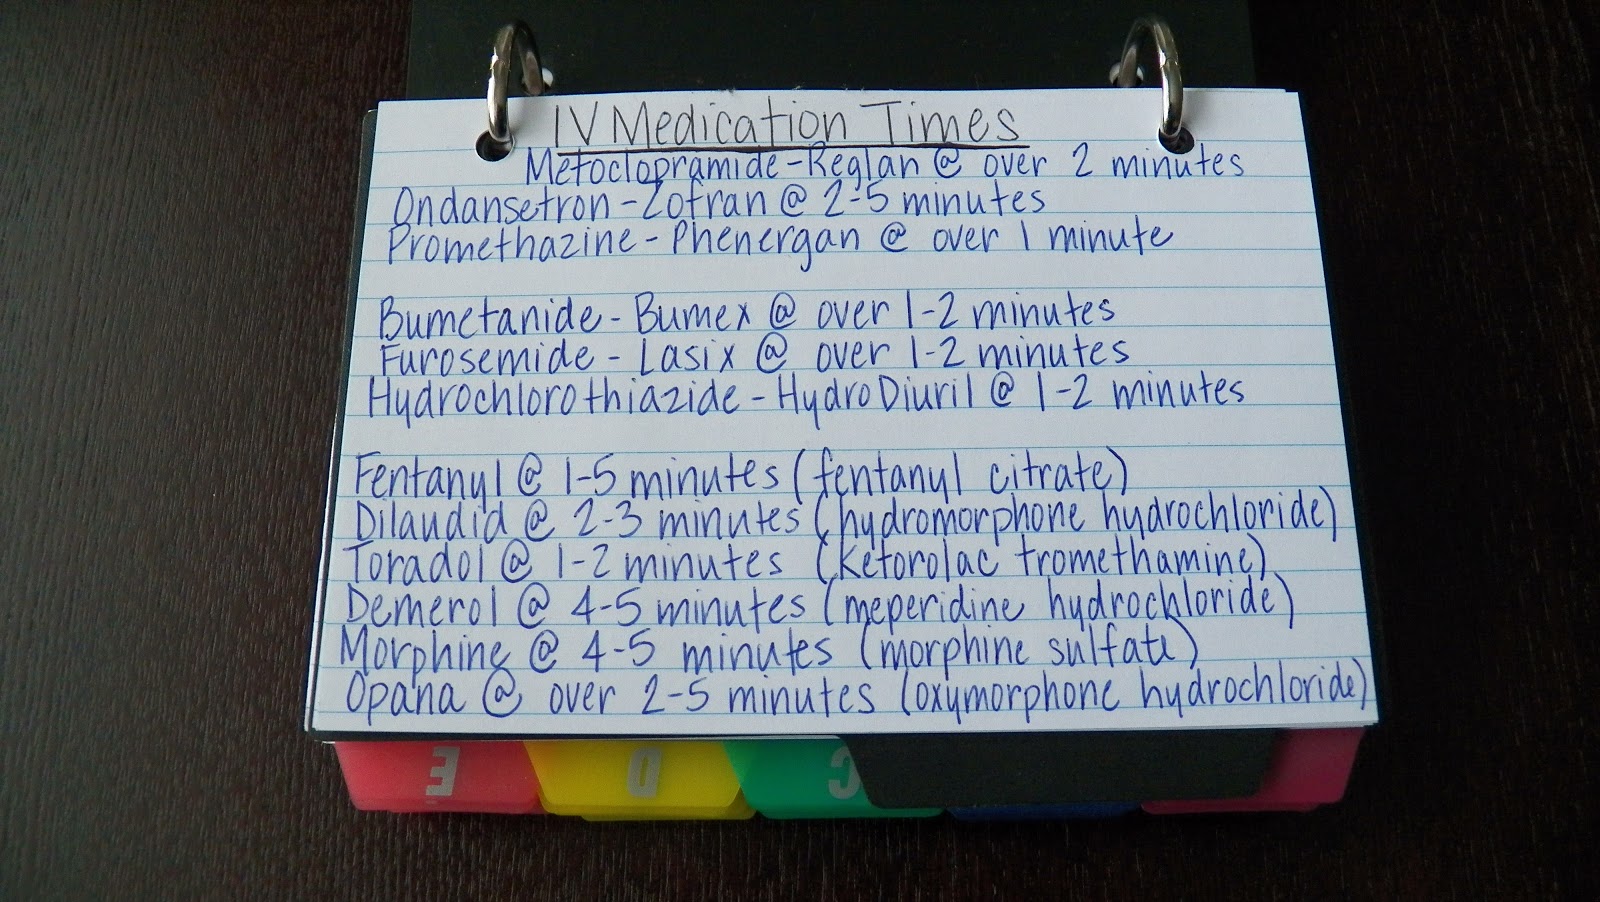 IV Medication Times
Metoclopramide-Reglan @ over 2 minutes
Ondansetron-Zofran @ 2-5 minutes
Promethazine-Phenergan @ over 1 minute
Bumetanide-Bumex @ over 1-2 minutes
Furosemide - Lasix @ over 1-2 minutes
Hydrochlorothiazide-HydroDiuril @ 1-2 minutes
Fentanyl @ 1-5 minutes (fentanyl citrate)
Dilaudid @ 2-3 minutes (hydromorphone hydrochloride)
Toradol @ 1-2 minutes (ketorolac tromethamine)
Demerol @ 4-5 minutes (meperidine hydrochloride)
Morphine @ 4-5 minutes (morphine sulfate)
Opana @ over 2-5 minutes (oxymorphone hydrochloride)
E D C